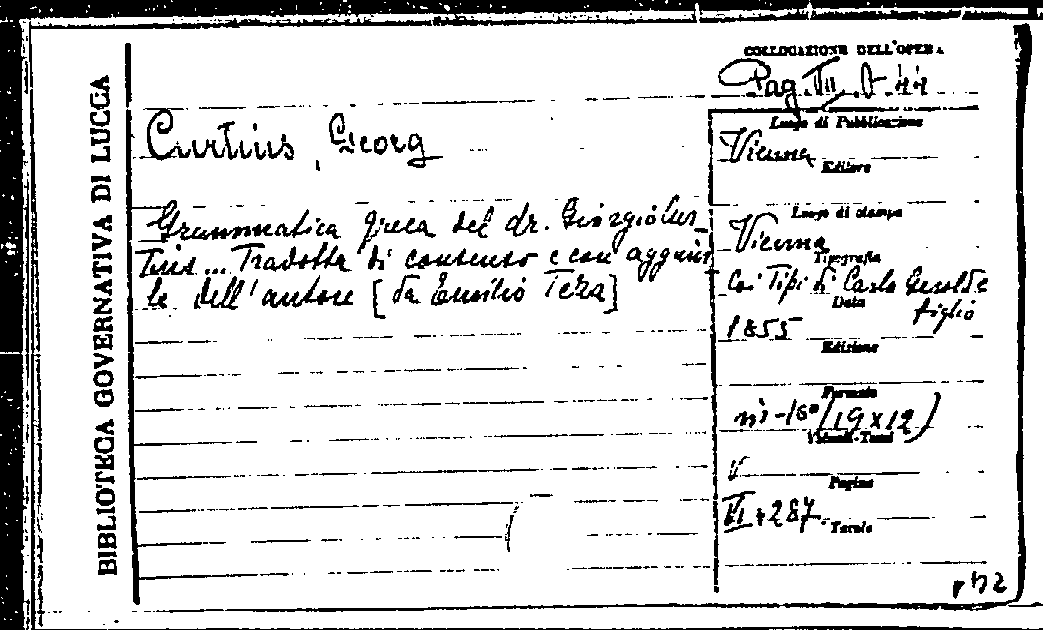 BIBLIOTECA GOVERNATIVA DI LUCCA
COLLOCAZIONE DELL'OPERA
Pag. VII. D. 44
Curtius, Georg
Grammatica greca del dr. Giorgio Cur-
tius... Tradotta di consenso e con aggiun
te dell'autore [da Emilio Teza]
Luogo di Pubblicazione
Vienna
Editore
Luogo di stampa
Vienna
Tipografia
Coi Tipi di Carlo Gerold e
figlio
Data
1855
Edizione
Formato
in-16° (19x12)
Volumi-Tomi
V
Pagine
VI+287.
Tavole